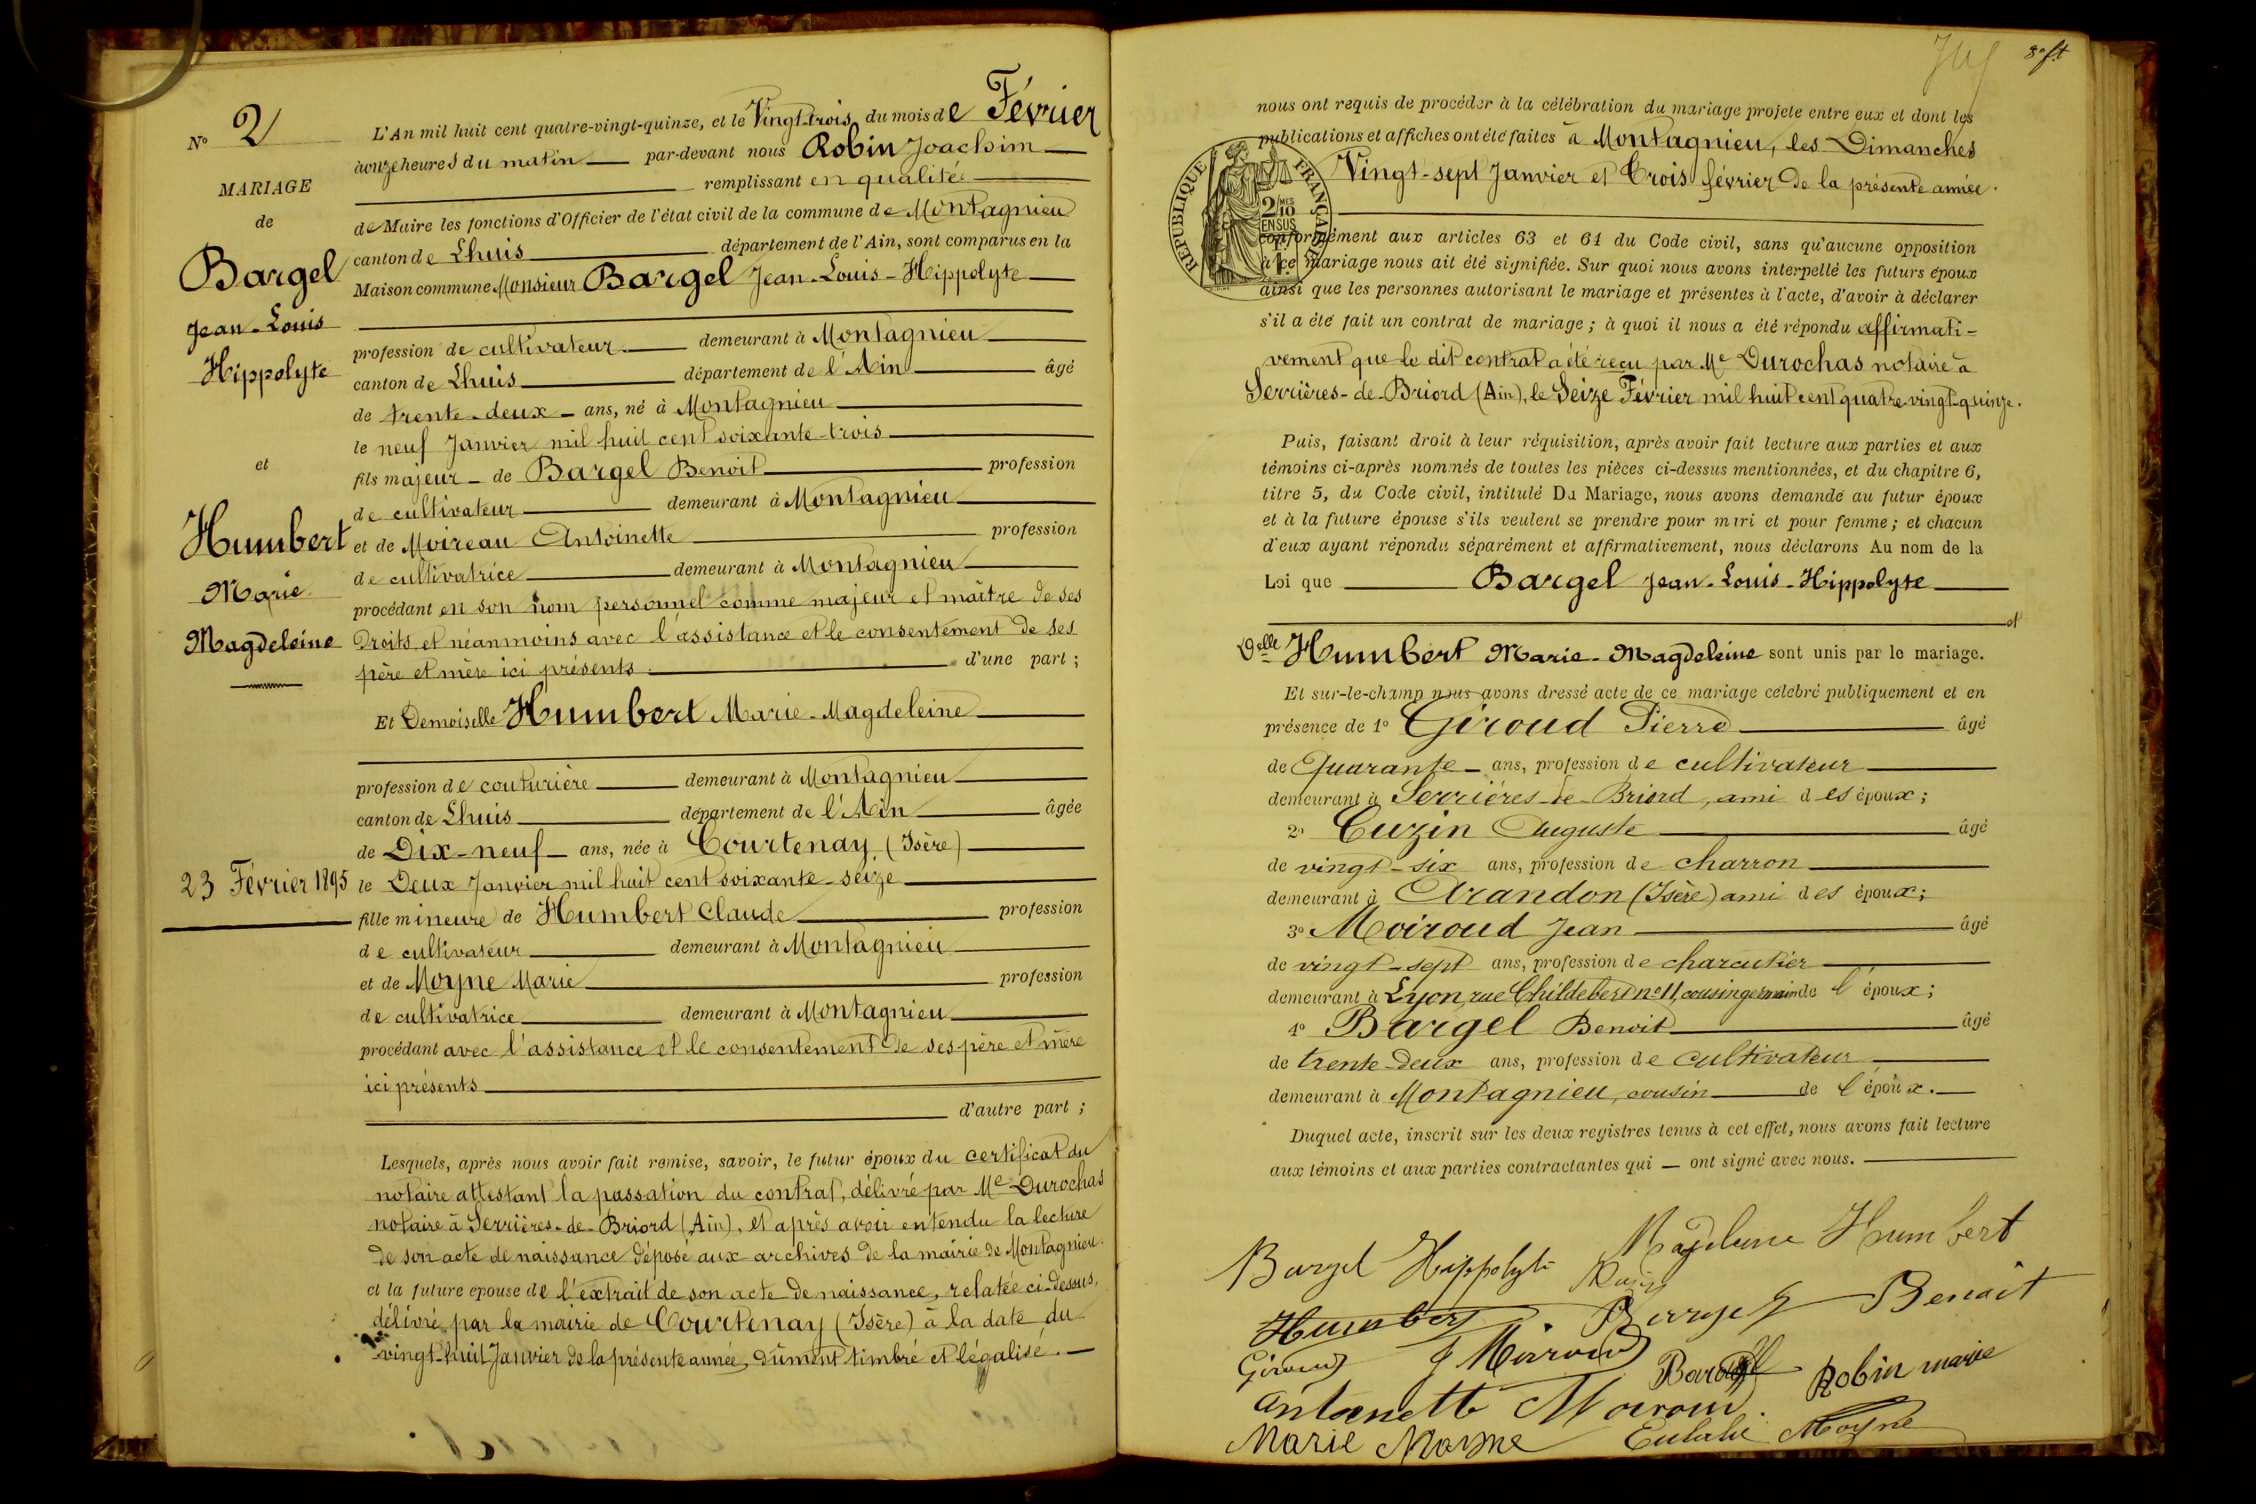 N° 2
MARIAGE
de
Bargel
Jean-Louis
Hippolyte
et
Humbert
Marie
Magdeleine
23 Février 1895
L'An mil huit cent quatre-vingt-quinze, et le Vingt-trois du mois de Février
à onze heures du matin par-devant nous Robin Joachim
remplissant en qualité
de Maire les fonctions d'Officier de l'état civil de la commune de Montagnieu
canton de Lhuis département de l'Ain, sont comparus en la
Maison commune Monsieur Bargel Jean-Louis-Hippolyte
profession de cultivateur demeurant à Montagnieu
canton de Lhuis département de l'Ain âgé
de trente-deux ans, né à Montagnieu
le neuf Janvier mil huit cent soixante-trois
fils majeur de Bargel Benoit profession
de cultivateur demeurant à Montagnieu
et de Moireau Antoinette profession
de cultivatrice demeurant à Montagnieu
procédant en son nom personnel comme majeur et maître de ses
Droits et néanmoins avec l'assistance et le consentement de ses
père et mère ici présents d'une part ;
Et Demoiselle Humbert Marie-Magdeleine
profession de couturière demeurant à Montagnieu
canton de Lhuis département de l'Ain âgée
de Dix-neuf ans, née à Courtenay (Isère)
le Deux Janvier mil huit cent soixante-seize
fille mineure de Humbert Claude profession
de cultivateur demeurant à Montagnieu
et de Moyne Marie profession
de cultivatrice demeurant à Montagnieu
procédant avec l'assistance et le consentement de ses père et mère
ici présents
d'autre part ;
Lesquels, après nous avoir fait remise, savoir, le futur époux du certificat du
notaire attestant la passation du contrat, délivré par Me Durochas
notaire à Serrières-de-Briord (Ain), et après avoir entendu la lecture
de son acte de naissance déposé aux archives de la mairie de Montagnieu.
et la future épouse de l'extrait de son acte de naissance, relatée ci-dessus,
délivré par la mairie de Courtenay (Isère) à la date du
vingt-huit Janvier de la présente année, dûment timbré et légalisé.
8e ft
nous ont requis de procéder à la célébration du mariage projeté entre eux et dont les
publications et affiches ont été faites à Montagnieu, les Dimanches
Vingt-sept Janvier et Trois février de la présente année.
RÉPUBLIQUE FRANÇAISE
2/10 MES
EN SUS
conformément aux articles 63 et 64 du Code civil, sans qu'aucune opposition
à ce mariage nous ait été signifiée. Sur quoi nous avons interpellé les futurs époux
ainsi que les personnes autorisant le mariage et présentes à l'acte, d'avoir à déclarer
s'il a été fait un contrat de mariage ; à quoi il nous a été répondu affirmati-
vement que le dit contrat a été reçu par Me Durochas notaire à
Serrières-de-Briord (Ain), le Seize Février mil huit cent quatre vingt-quinze.
Puis, faisant droit à leur réquisition, après avoir fait lecture aux parties et aux
témoins ci-après nommés de toutes les pièces ci-dessus mentionnées, et du chapitre 6,
titre 5, du Code civil, intitulé Du Mariage, nous avons demandé au futur époux
et à la future épouse s'ils veulent se prendre pour mari et pour femme ; et chacun
d'eux ayant répondu séparément et affirmativement, nous déclarons Au nom de la
Loi que Bargel Jean-Louis-Hippolyte
et
Delle Humbert Marie-Magdeleine sont unis par le mariage.
Et sur-le-champ nous avons dressé acte de ce mariage célébré publiquement et en
présence de 1° Giroud Pierre âgé
de Quarante ans, profession de cultivateur
demeurant à Serrières-de-Briord, ami des époux ;
2° Cuzin Auguste âgé
de vingt-six ans, profession de charron
demeurant à Arandon (Isère) ami des époux ;
3° Moiroud Jean âgé
de vingt-sept ans, profession de charcutier
demeurant à Lyon, rue Childebert n° 11, cousin germain de l'époux ;
4° Bargel Benoit âgé
de trente-deux ans, profession de cultivateur
demeurant à Montagnieu, cousin de l'époux.
Duquel acte, inscrit sur les deux registres tenus à cet effet, nous avons fait lecture
aux témoins et aux parties contractantes qui ont signé avec nous.
Bargel Hippolyte Magdeleine Humbert
Humbert Benoit
Giroud J Moiroud Bargel Robin marie
Antoinette Moiroud
Marie Moyne Eulalie Moyne